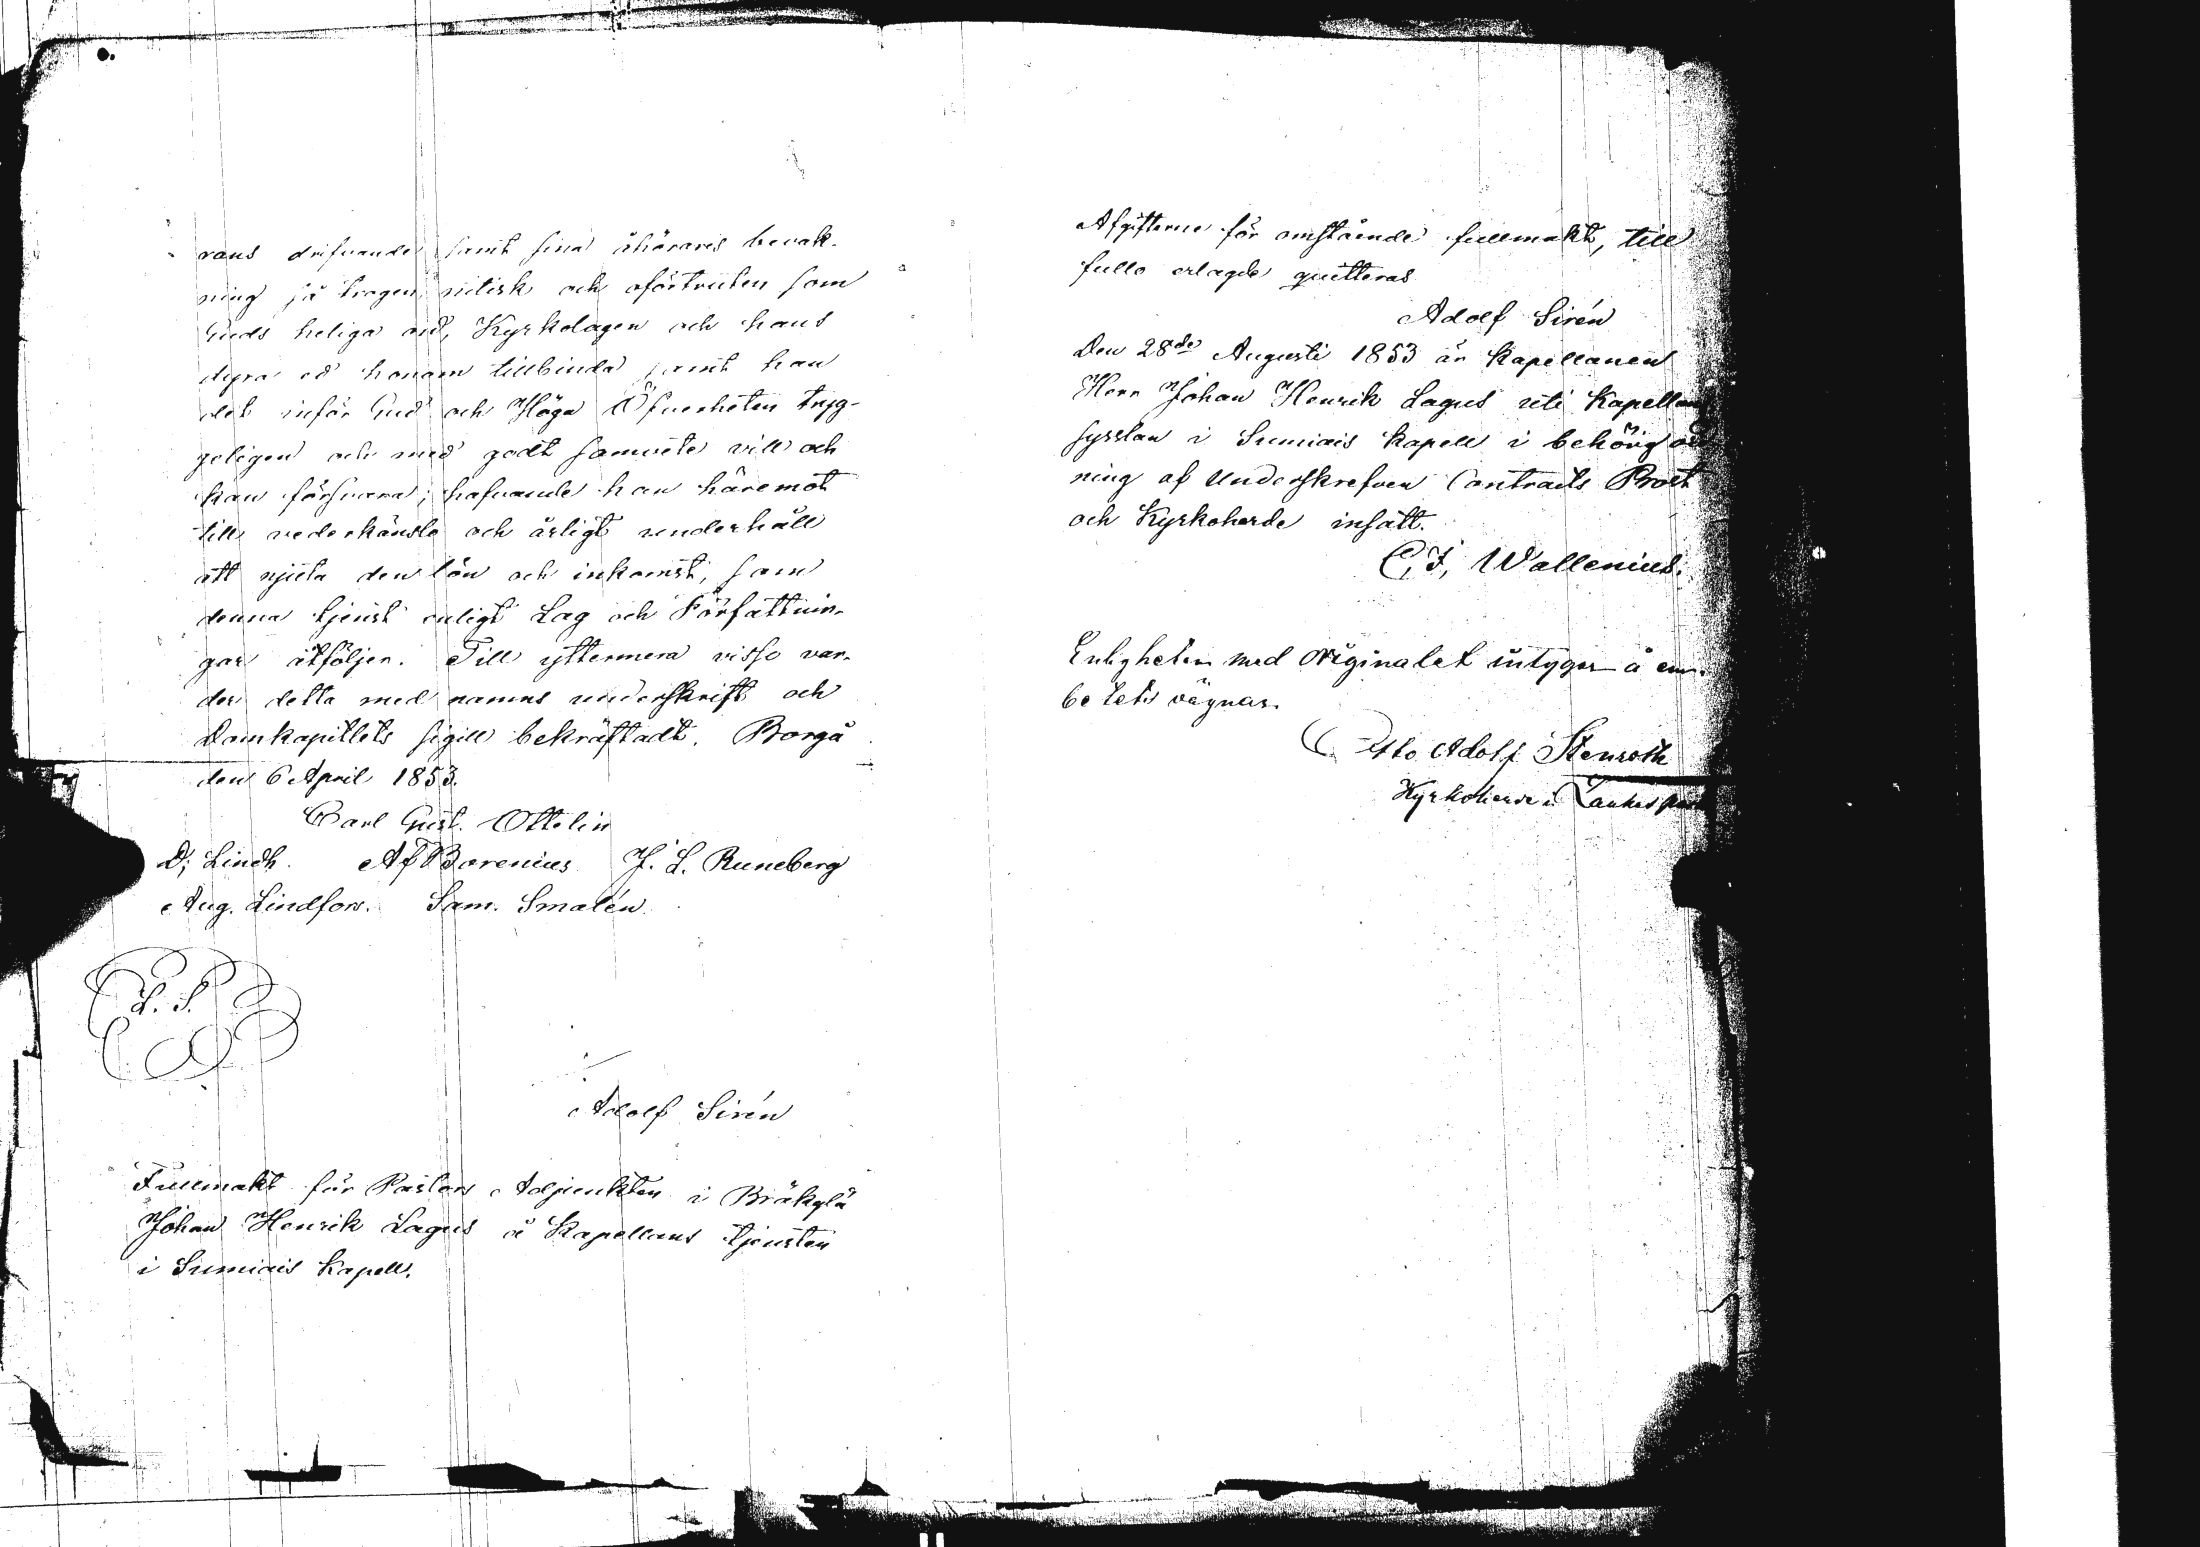 rans drifvande samt sina åhörares bevak-
ning så trogen, nitisk och oförtruten som
Guds heliga ord, Kyrkolagen och hans
dyra ed honom tillbinda samt han
det inför Gud och Höga Öfverheten tryg-
geligen och med godt samvete vill och
kan försvara; hafvande han häremot
till vederkänsla och årligt underhåll
att njuta den lön och inkomst, som
denna tjenst enligt Lag och Författnin-
gar åtföljer. Till yttermera visso var-
der detta med namns underskrift och
Domkapitlets sigill bekräftadt. Borgå
den 6 April 1853.
Carl Gust. Ottelin
D; Lindh. Af Borenius J. L. Runeberg
Aug. Lindfors. Sam. Smalén
L. S.
Adolf Sirén
Fullmakt för Pastors Adjunkten i Bräkylä
Johan Henrik Lagus å Kapellans tjensten
i Sumiais Kapell.
Afgifterne för omstående fullmakt, till
fullo erlagde quitteras
Adolf Sirén
Den 28de Augusti 1853 är Kapellanen
Herr Johan Henrik Lagus uti Kapellans
sysslan i Sumiais Kapell i behörig ord
ning af Underskrefven Contracts Prost
och Kyrkoherde insatt.
C, J, Wallenius.
Enligheten med originalet intygar å em-
betets vägnar.
Otto Adolf Stenroth
Kyrkoherde i